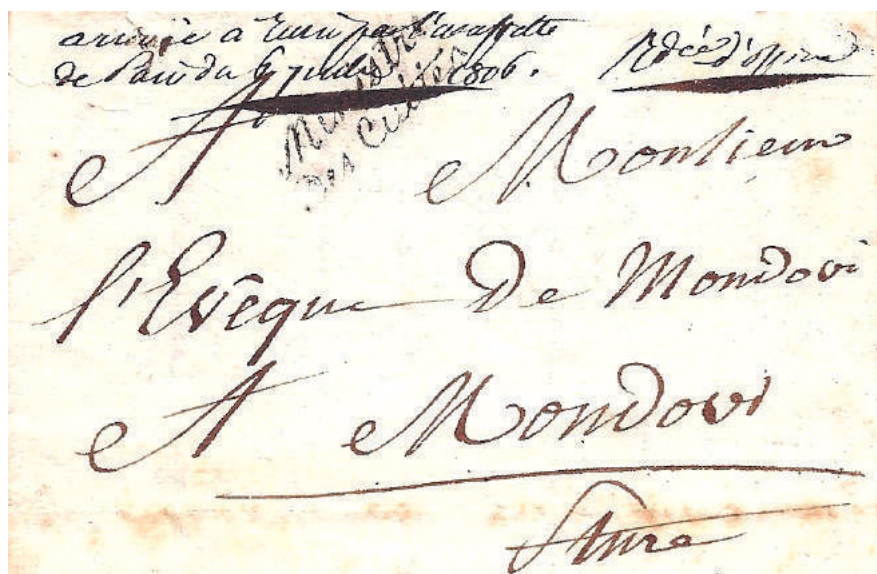 arrivée à Turin par l'estaffette
de Paris du 6 juillet 1806.
Rdée d'office
Ministre
Des Cultes
A Monsieur
l'Evêque De Mondovi
A Mondovi
Sture